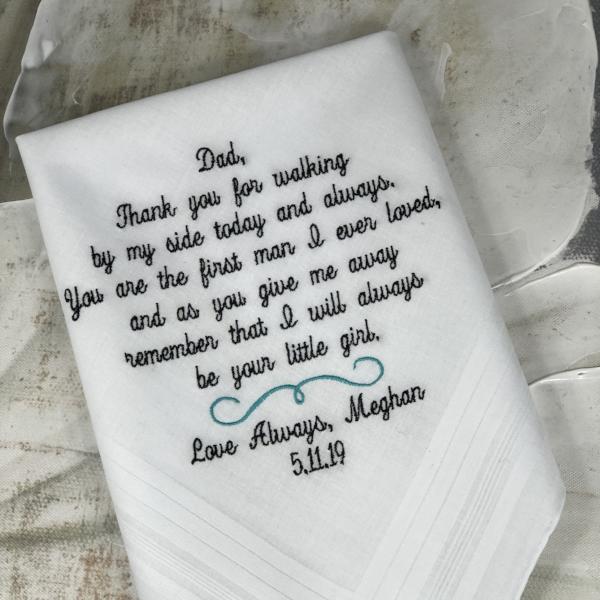 Dad,
Thank you for walking
by my side today and always.
You are the first man I ever loved,
and as you give me away
remember that I will always
be your little girl.
Love Always, Meghan
5.11.19